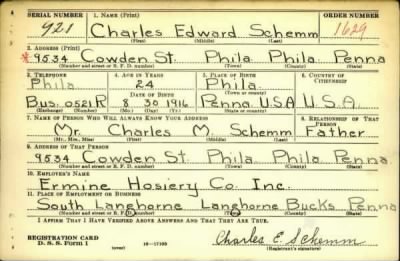 SERIAL NUMBER 1. NAME (Print) ORDER NUMBER
921 Charles Edward Schemm 1629
(First) (Middle) (Last)
2. ADDRESS (Print)
*9534 Cowden St. Phila. Phila. Penna
(Number and street or R. F. D. number) (Town) (County) (State)
3. TELEPHONE 4. AGE IN YEARS 5. PLACE OF BIRTH 6. COUNTRY OF CITIZENSHIP
Phila 24 Phila.
DATE OF BIRTH (Town or county)
Bus. 0521R 8 30 1916 Penna. U.S.A U.S.A.
(Exchange) (Number) (Mo.) (Day) (Yr.) (State or country)
7. NAME OF PERSON WHO WILL ALWAYS KNOW YOUR ADDRESS 8. RELATIONSHIP OF THAT PERSON
Mr. Charles M. Schemm Father
(Mr., Mrs., Miss) (First) (Middle) (Last)
9. ADDRESS OF THAT PERSON
9534 Cowden St. Phila. Phila. Penna.
(Number and street or R. F. D. number) (Town) (County) (State)
10. EMPLOYER'S NAME
Ermine Hosiery Co. Inc.
11. PLACE OF EMPLOYMENT OR BUSINESS
South Langhorne Langhorne Bucks Penna
(Number and street or R. F. D. number) (Town) (County) (State)
I AFFIRM THAT I HAVE VERIFIED ABOVE ANSWERS AND THAT THEY ARE TRUE.
REGISTRATION CARD
D. S. S. Form 1 (over) 16—17105 Charles E. Schemm
(Registrant's signature)